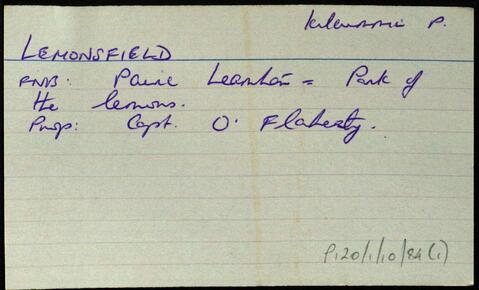 Kilcummin P.
LEMONSFIELD
FNB: Páirc Leamhán = Park of
the lemons.
Prop: Capt. O' Flaherty.
P120/1/10/84(1)